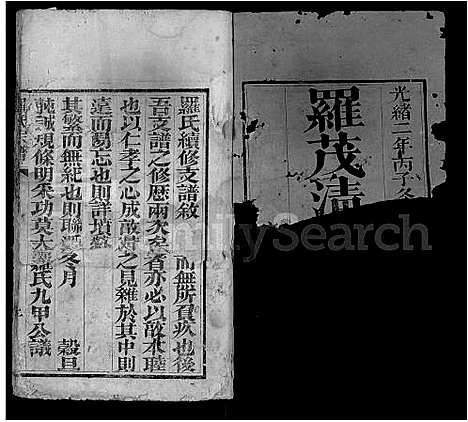 光緒二年丙子冬
羅茂清
羅氏續修支譜敘
而無所負疚也後
吾支之譜之修歷兩次矣
者亦必以敬木睦
也以仁孝之心成敬
之見雜於其中則
遠而易忘也則詳墳
其繁而無紀也則聯
冬月
穀旦
誠規條明采功莫大
羅氏九甲公議
FamilySearch